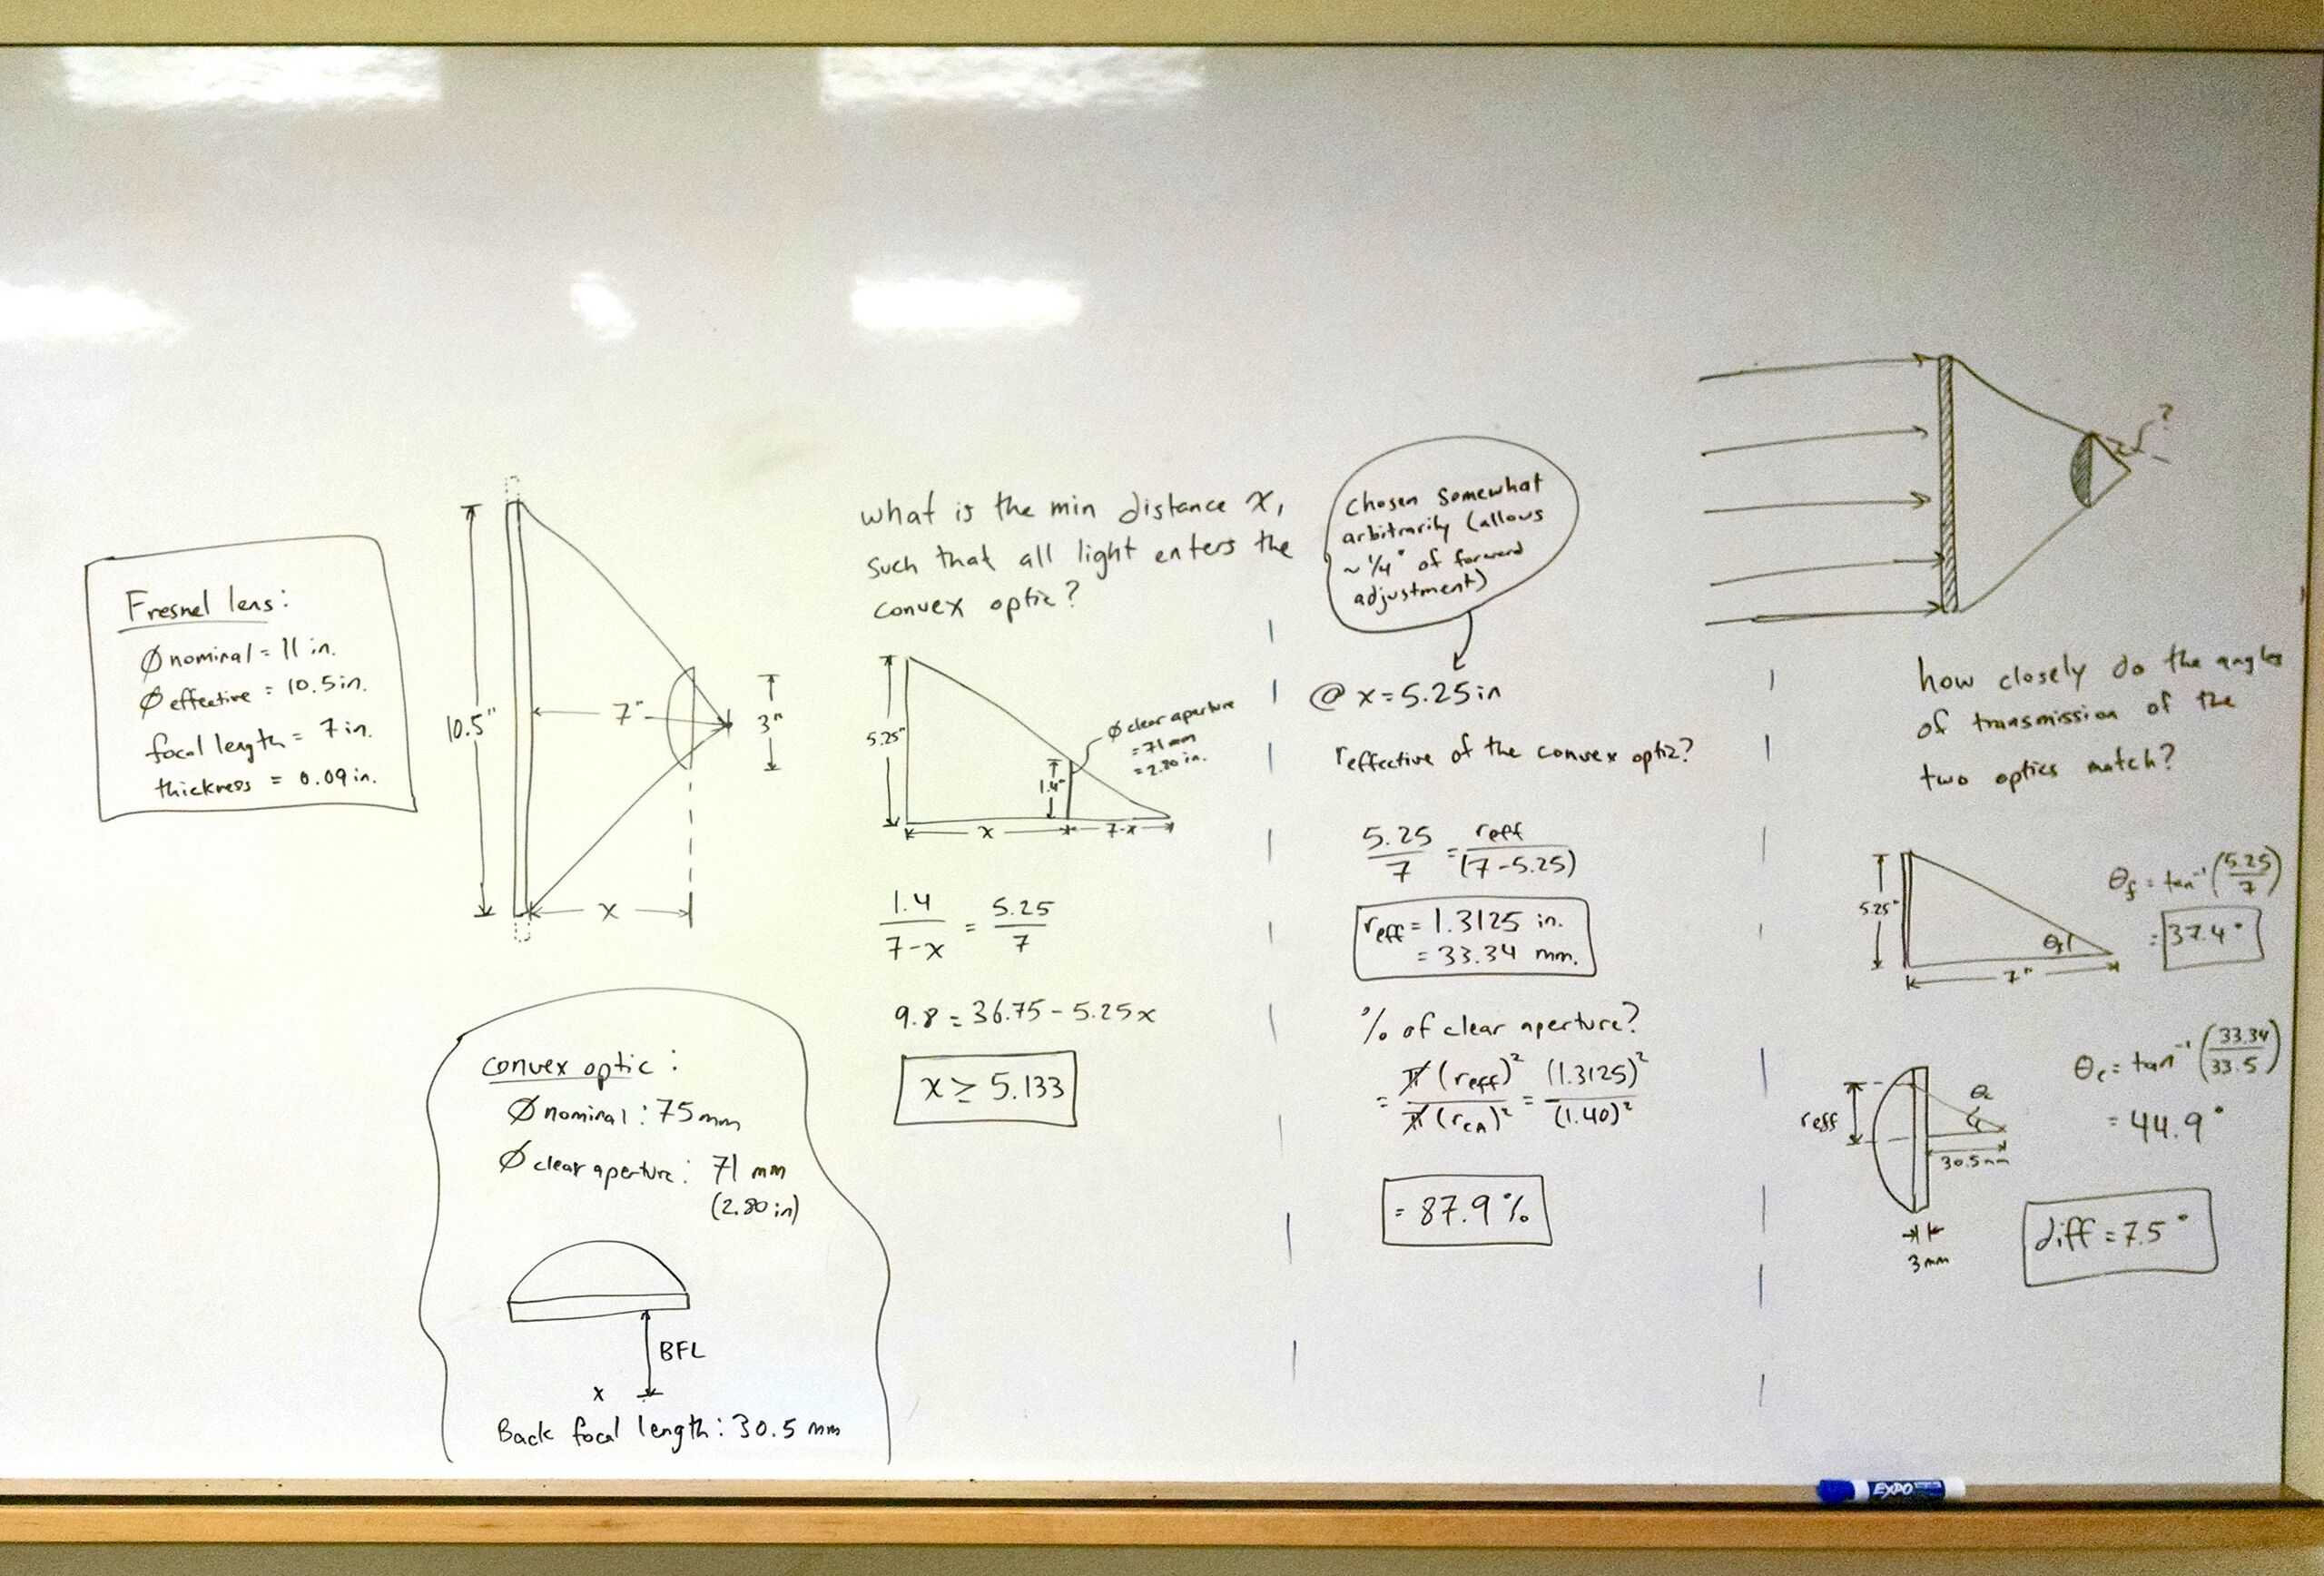 Fresnel lens:
Ø nominal = 11 in.
Ø effective = 10.5 in.
focal length = 7 in.
thickness = 0.09 in.
10.5"
7"
3"
x
convex optic:
Ø nominal: 75 mm
Ø clear aperture: 71 mm
(2.80 in)
BFL
x
Back focal length: 30.5 mm
what is the min distance x,
such that all light enters the
convex optic?
5.25"
1.4"
Ø clear aperture
= 71 mm
= 2.80 in.
x
7-x
1.4 / 7-x = 5.25 / 7
9.8 = 36.75 - 5.25x
x ≥ 5.133
chosen somewhat
arbitrarily (allows
~ 1/4" of forward
adjustment)
@ x = 5.25 in
reffective of the convex optic?
5.25 / 7 = reff / (7-5.25)
reff = 1.3125 in.
= 33.34 mm.
% of clear aperture?
= π (reff)² / π (rCA)² = (1.3125)² / (1.40)²
= 87.9 %
?
how closely do the angles
of transmission of the
two optics match?
5.25"
7"
θf
θf = tan⁻¹ (5.25 / 7)
= 37.4°
reff
θc
30.5 mm
3 mm
θc = tan⁻¹ (33.34 / 33.5)
= 44.9°
diff = 7.5°
EXPO